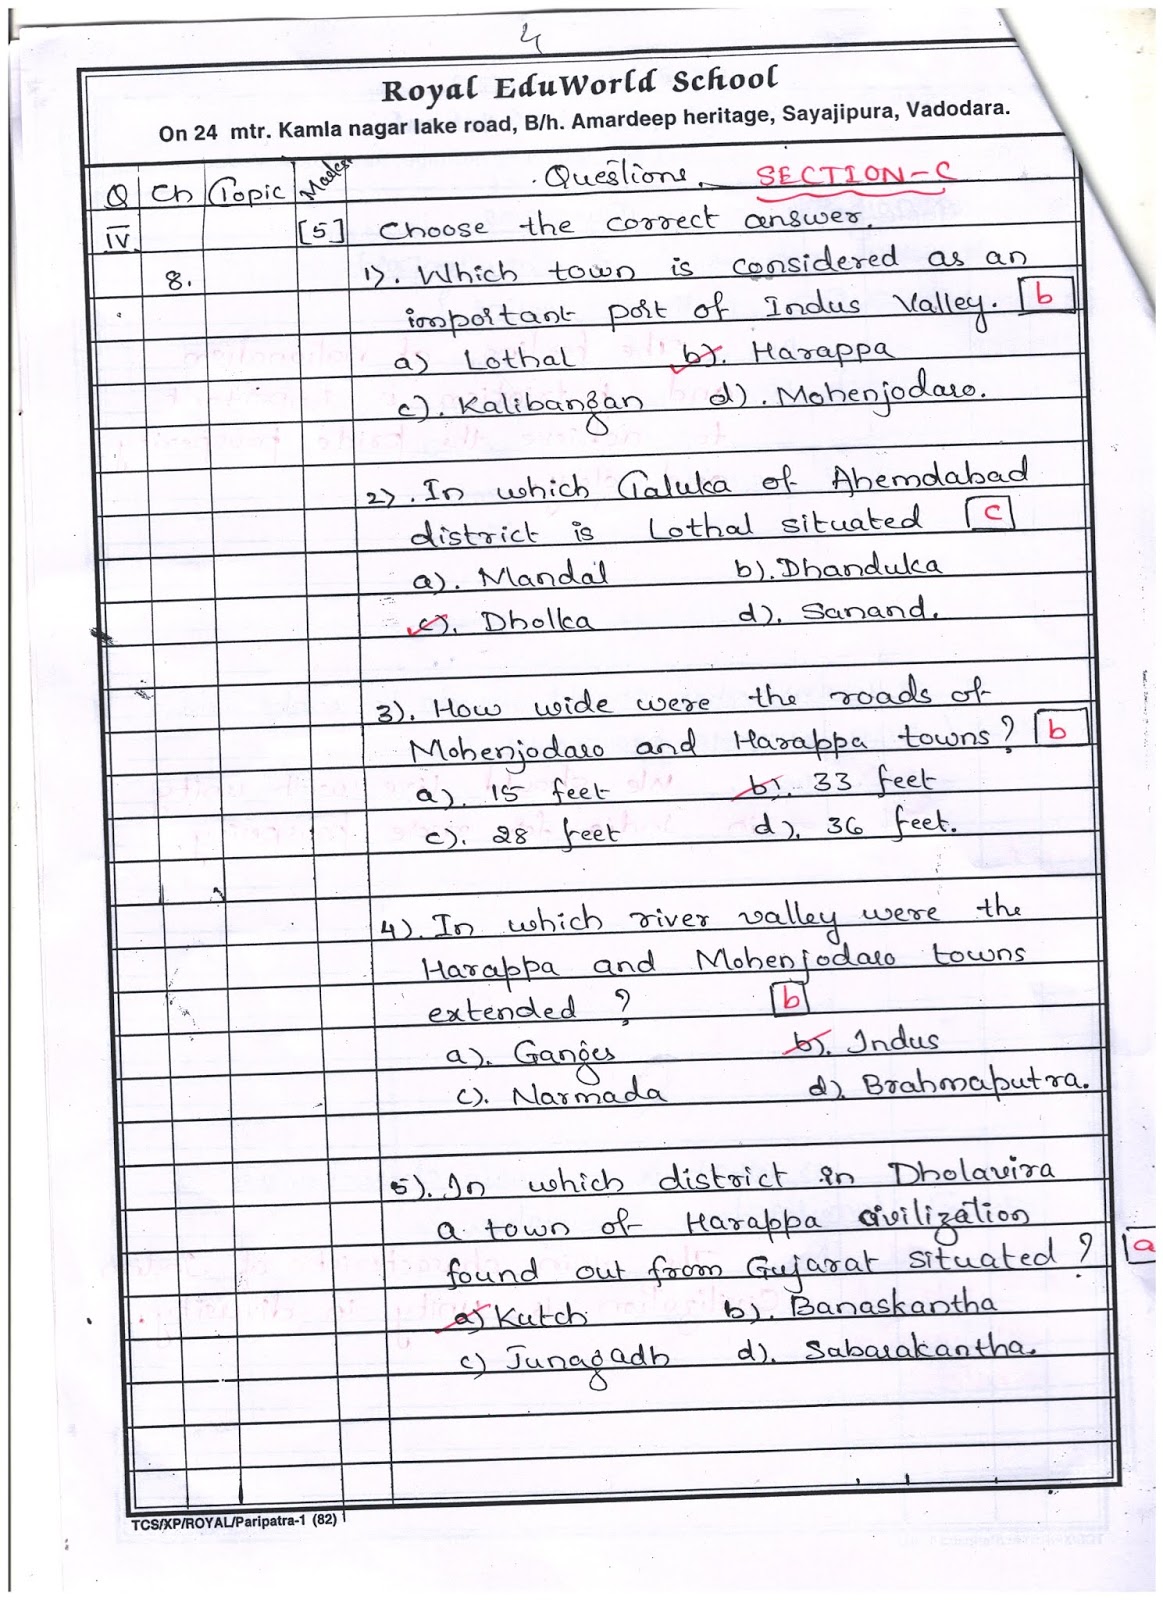 4
Royal EduWorld School
On 24 mtr. Kamla nagar lake road, B/h. Amardeep heritage, Sayajipura, Vadodara.
Q Ch Topic Marks Questions. SECTION-C
IV [5] Choose the correct answer.
8. 1). Which town is considered as an
important port of Indus Valley. b
a) Lothal b). Harappa
c). Kalibangan d). Mohenjodaro.
2). In which Taluka of Ahemdabad
district is Lothal situated c
a). Mandal b). Dhanduka
c). Dholka d). Sanand.
3). How wide were the roads of
Mohenjodaro and Harappa towns? b
a). 15 feet b). 33 feet
c). 28 feet d). 36 feet.
4). In which river valley were the
Harappa and Mohenjodaro towns
extended ? b
a). Ganges b). Indus
c). Narmada d). Brahmaputra.
5). In which district in Dholavira
a town of Harappa civilization
found out from Gujarat situated? a
a) Kutch b). Banaskantha
c) Junagadh d). Sabarakantha.
TCS/XP/ROYAL/Paripatra-1 (82)